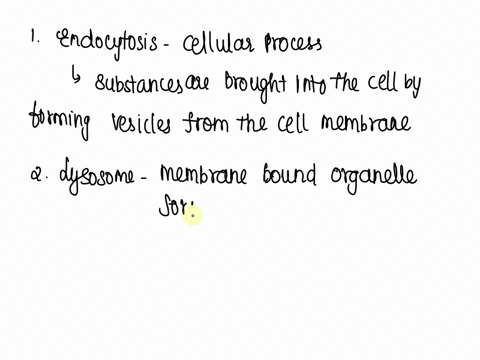 1. Endocytosis - cellular process
↳ substances are brought into the cell by
forming vesicles from the cell membrane
2. Lysosome - membrane bound organelle
for